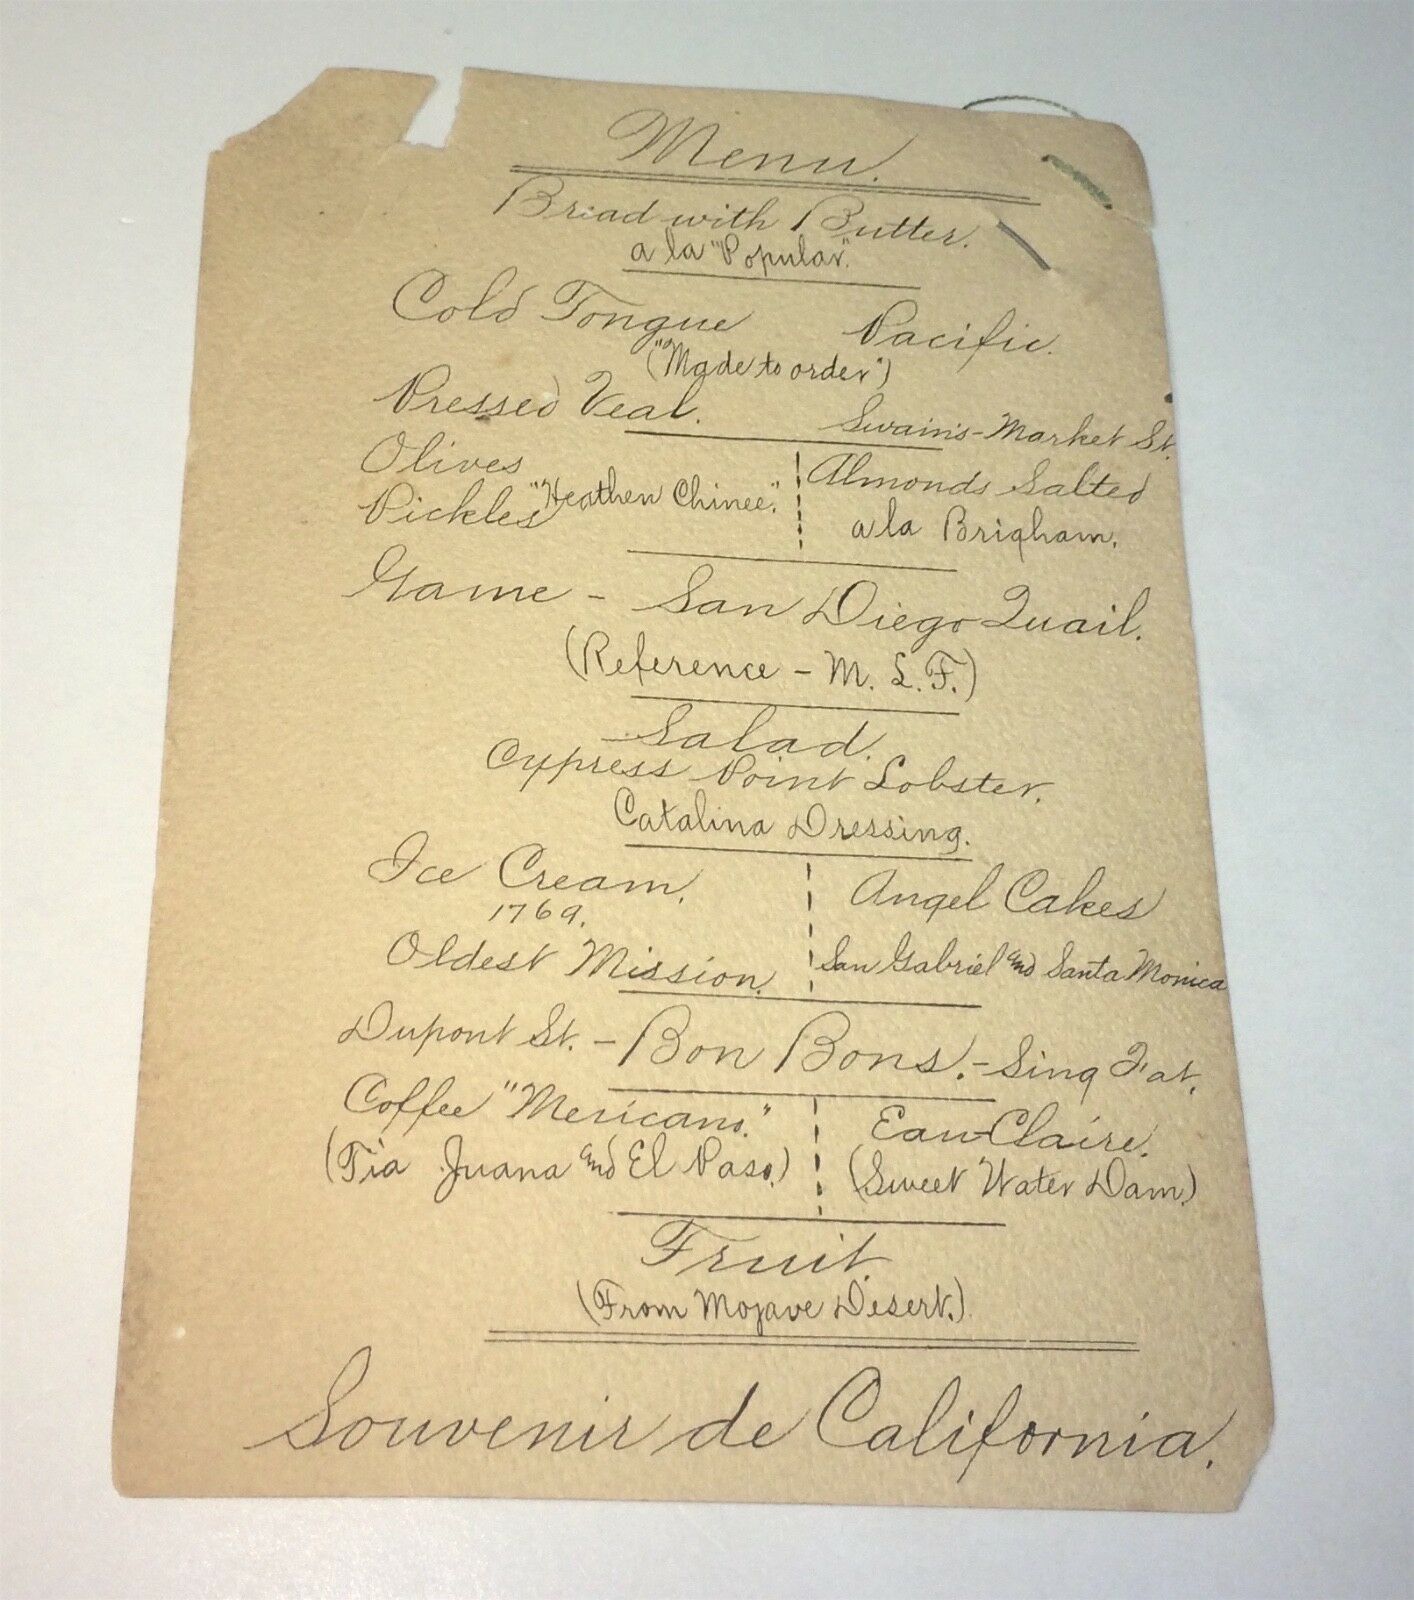 Menu.
Bread with Butter.
a la "Popular".
Cold Tongue Pacific.
("Made to order")
Pressed Veal. Swain's - Market St.
Olives Almonds Salted
Pickles "Heathen Chinee." a la Brigham.
Game - San Diego Quail.
(Reference - M. L. F.)
Salad.
Cypress Point Lobster.
Catalina Dressing.
Ice Cream. Angel Cakes
1769.
Oldest Mission. San Gabriel and Santa Monica
Dupont St. - Bon Bons. - Sing Fat.
Coffee "Mexicano." Eau Claire.
(Tia Juana and El Paso.) (Sweet Water Dam)
Fruit.
(From Mojave Desert.)
Souvenir de California.